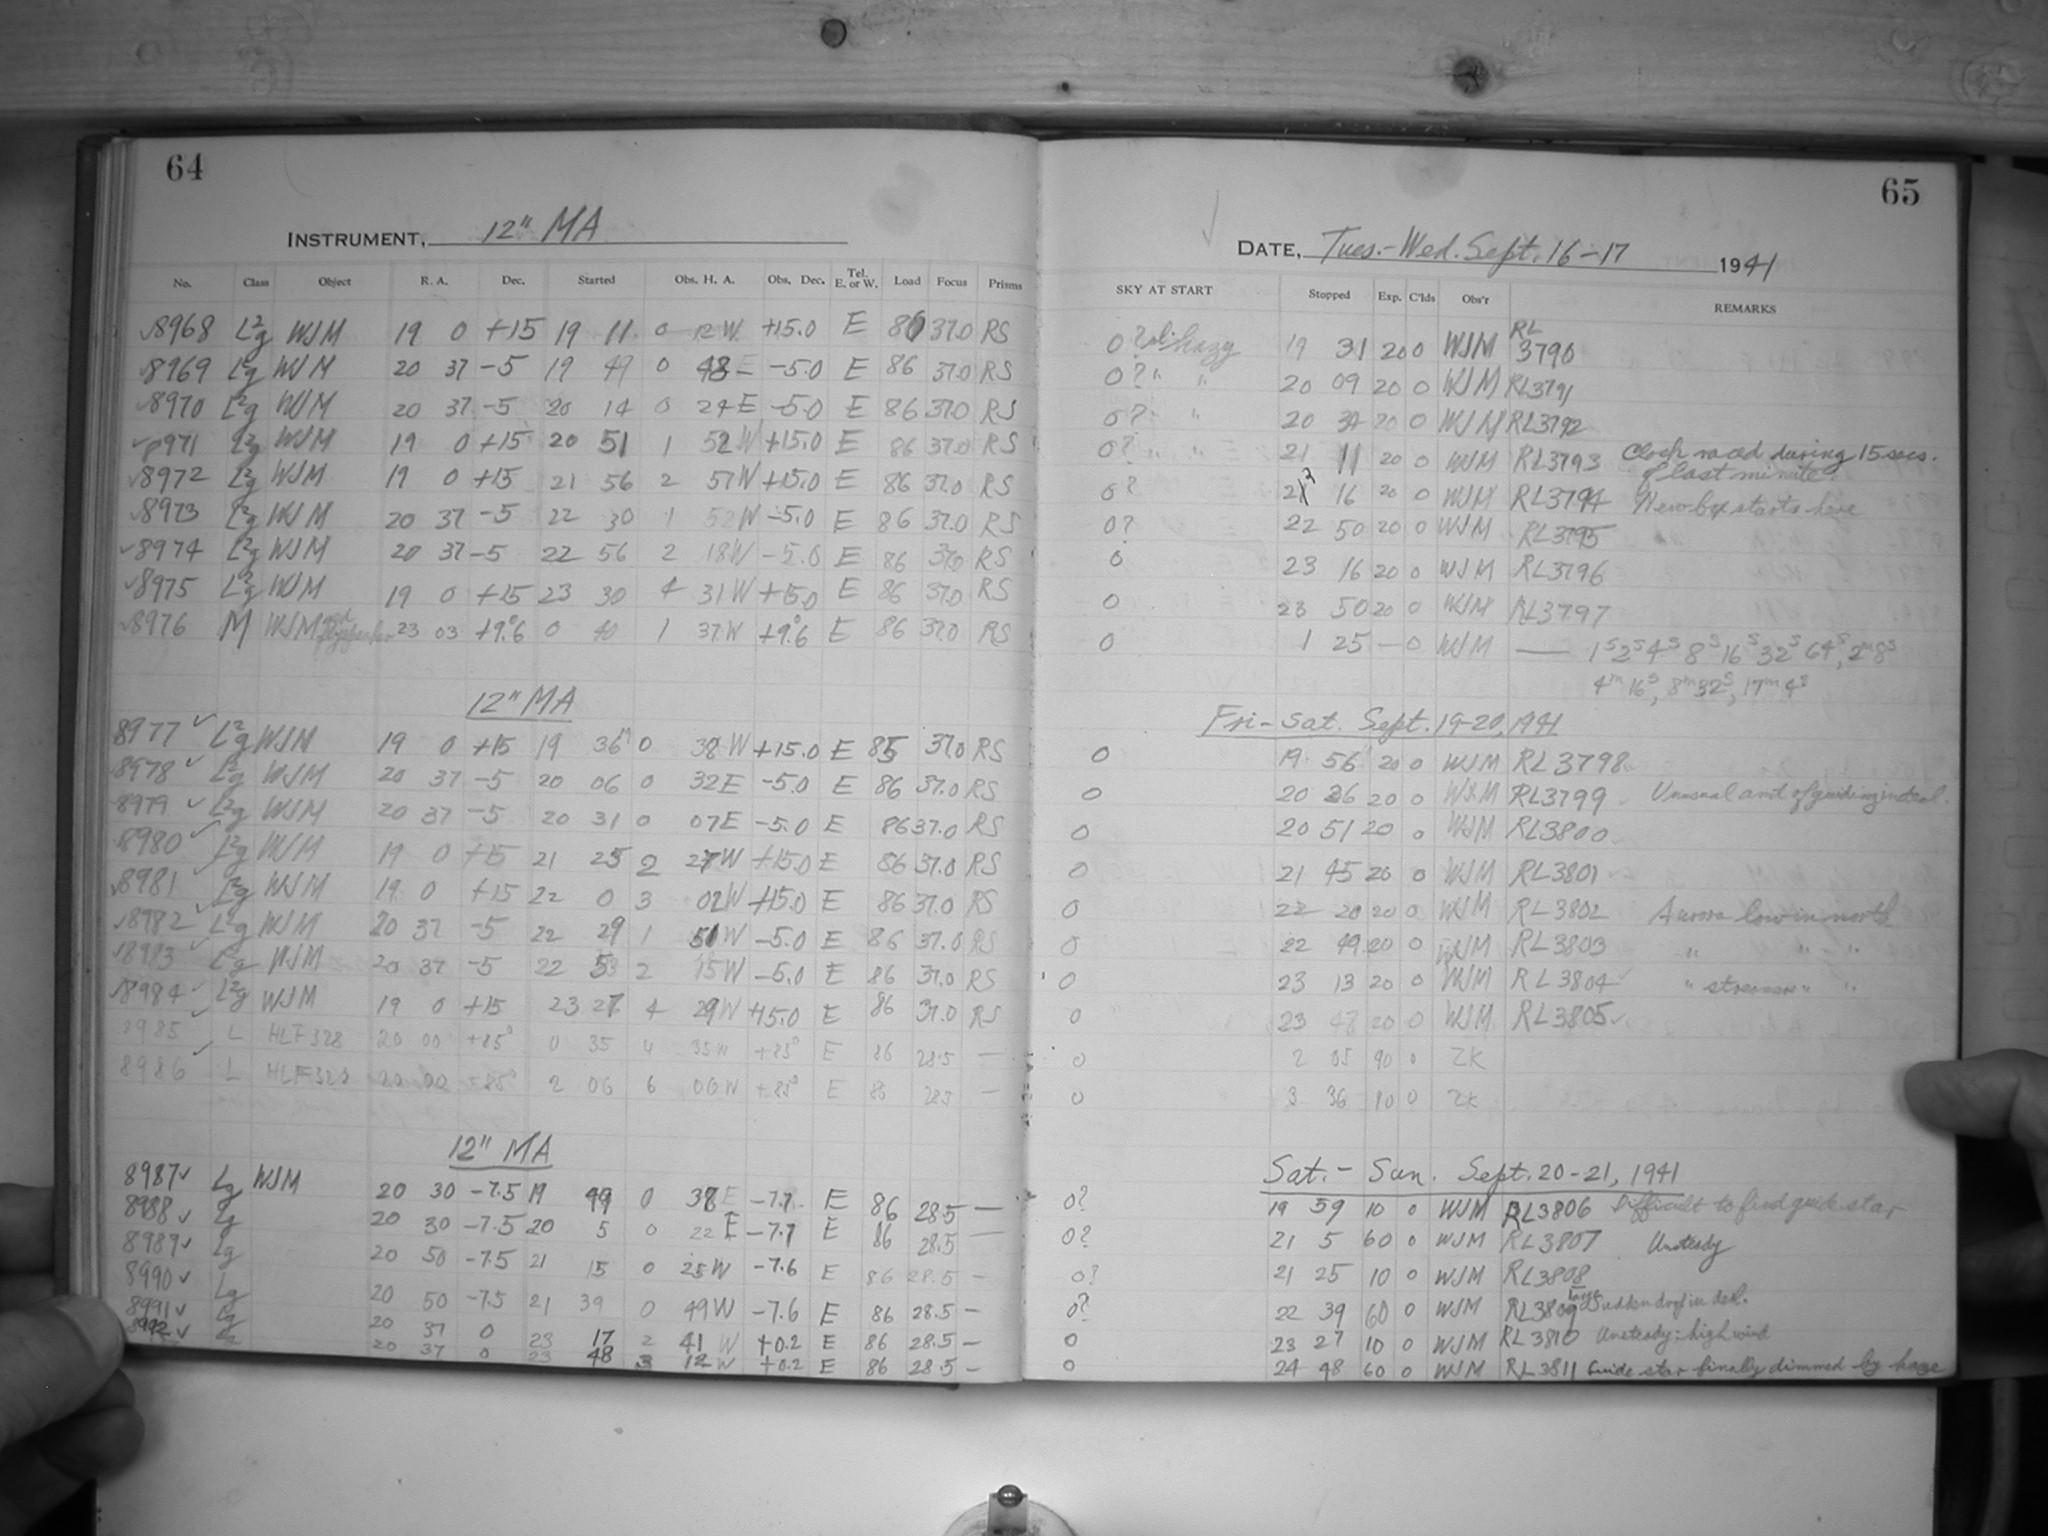 64
INSTRUMENT, 12" MA
No. Class Object R. A. Dec. Started Obs. H. A. Obs. Dec. Tel. E. or W. Load Focus Prisms
8968 L²g WJM 19 0 +15 19 11 0 12 W +15.0 E 86 37.0 RS
8969 L²g WJM 20 37 -5 19 49 0 48 E -5.0 E 86 37.0 RS
8970 L²g WJM 20 37 -5 20 14 0 24 E -5.0 E 86 37.0 RS
8971 L²g WJM 19 0 +15 20 51 1 52 W +15.0 E 86 37.0 RS
8972 L²g WJM 19 0 +15 21 56 2 57 W +15.0 E 86 37.0 RS
8973 L²g WJM 20 37 -5 22 30 1 52 W -5.0 E 86 37.0 RS
8974 L²g WJM 20 37 -5 22 56 2 18 W -5.0 E 86 37.0 RS
8975 L²g WJM 19 0 +15 23 30 4 31 W +15.0 E 86 37.0 RS
8976 M WJM 23 03 +9.°6 0 40 1 37 W +9.°6 E 86 37.0 RS
12" MA
8977 L²g WJM 19 0 +15 19 36 0 38 W +15.0 E 85 37.0 RS
8978 L²g WJM 20 37 -5 20 06 0 32 E -5.0 E 86 37.0 RS
8979 L²g WJM 20 37 -5 20 31 0 07 E -5.0 E 86 37.0 RS
8980 L²g WJM 19 0 +15 21 25 2 27 W +15.0 E 86 37.0 RS
8981 L²g WJM 19 0 +15 22 0 3 02 W +15.0 E 86 37.0 RS
8982 L²g WJM 20 37 -5 22 29 1 51 W -5.0 E 86 37.0 RS
8983 L²g WJM 20 37 -5 22 53 2 15 W -5.0 E 86 37.0 RS
8984 L²g WJM 19 0 +15 23 27 4 29 W +15.0 E 86 37.0 RS
8985 L HLF 328 20 00 +85° 0 35 4 35 W +85° E 86 28.5 —
8986 L 20 00 +85° 2 06 6 06 W +85° E 86 28.5 —
12" MA
8987 Lg WJM 20 30 -7.5 19 49 0 38 E -7.7 E 86 28.5 —
8988 Lg 20 30 -7.5 20 5 0 22 E -7.7 E 86 28.5 —
8989 Lg 20 50 -7.5 21 15 0 25 W -7.6 E 86 28.5 —
8990 Lg 20 50 -7.5 21 39 0 49 W -7.6 E 86 28.5 —
8991 Lg 20 37 0 23 17 2 41 W +0.2 E 86 28.5 —
8992 Lg 20 37 0 23 48 3 12 W +0.2 E 86 28.5 —
65
DATE, Tues.-Wed. Sept. 16-17 1941
SKY AT START Stopped Exp. C'lds Obs'r REMARKS
0? hazy 19 31 20 0 WJM RL 3790
0? " " 20 09 20 0 WJM RL3791
0? " " 20 34 20 0 WJM RL3792
0? " " 21 11 20 0 WJM RL3793 Clock raced during 15 secs. of last minute.
0? 22 16 20 0 WJM RL3794 New box starts here
0? 22 50 20 0 WJM RL3795
0 23 16 20 0 WJM RL3796
0 23 50 20 0 WJM RL3797
0 1 25 — 0 WJM — 1ˢ 2ˢ 4ˢ 8ˢ 16ˢ 32ˢ 64ˢ, 2ᵐ 8ˢ
4ᵐ 16ˢ, 8ᵐ 32ˢ, 17ᵐ 4ˢ
Fri-Sat. Sept. 19-20, 1941
0 19 56 20 0 WJM RL3798
0 20 26 20 0 WJM RL3799 Unusual amt of guiding in decl.
0 20 51 20 0 WJM RL3800
0 21 45 20 0 WJM RL3801
0 22 20 20 0 WJM RL3802 Aurora low in north
0 22 49 20 0 WJM RL3803 " " "
0 23 13 20 0 WJM RL3804 " streamers " "
0 23 47 20 0 WJM RL3805
0 2 05 90 0 ZK
0 3 36 90 0 ZK
Sat.- Sun. Sept. 20-21, 1941
0? 19 59 10 0 WJM RL3806 Difficult to find guide star
0? 21 5 60 0 WJM RL3807 Unsteady
0? 21 25 10 0 WJM RL3808
0? 22 39 60 0 WJM RL3809 Large sudden drop in decl.
0 23 27 10 0 WJM RL3810 Unsteady: high wind
0 24 48 60 0 WJM RL3811 Guide star finally dimmed by haze